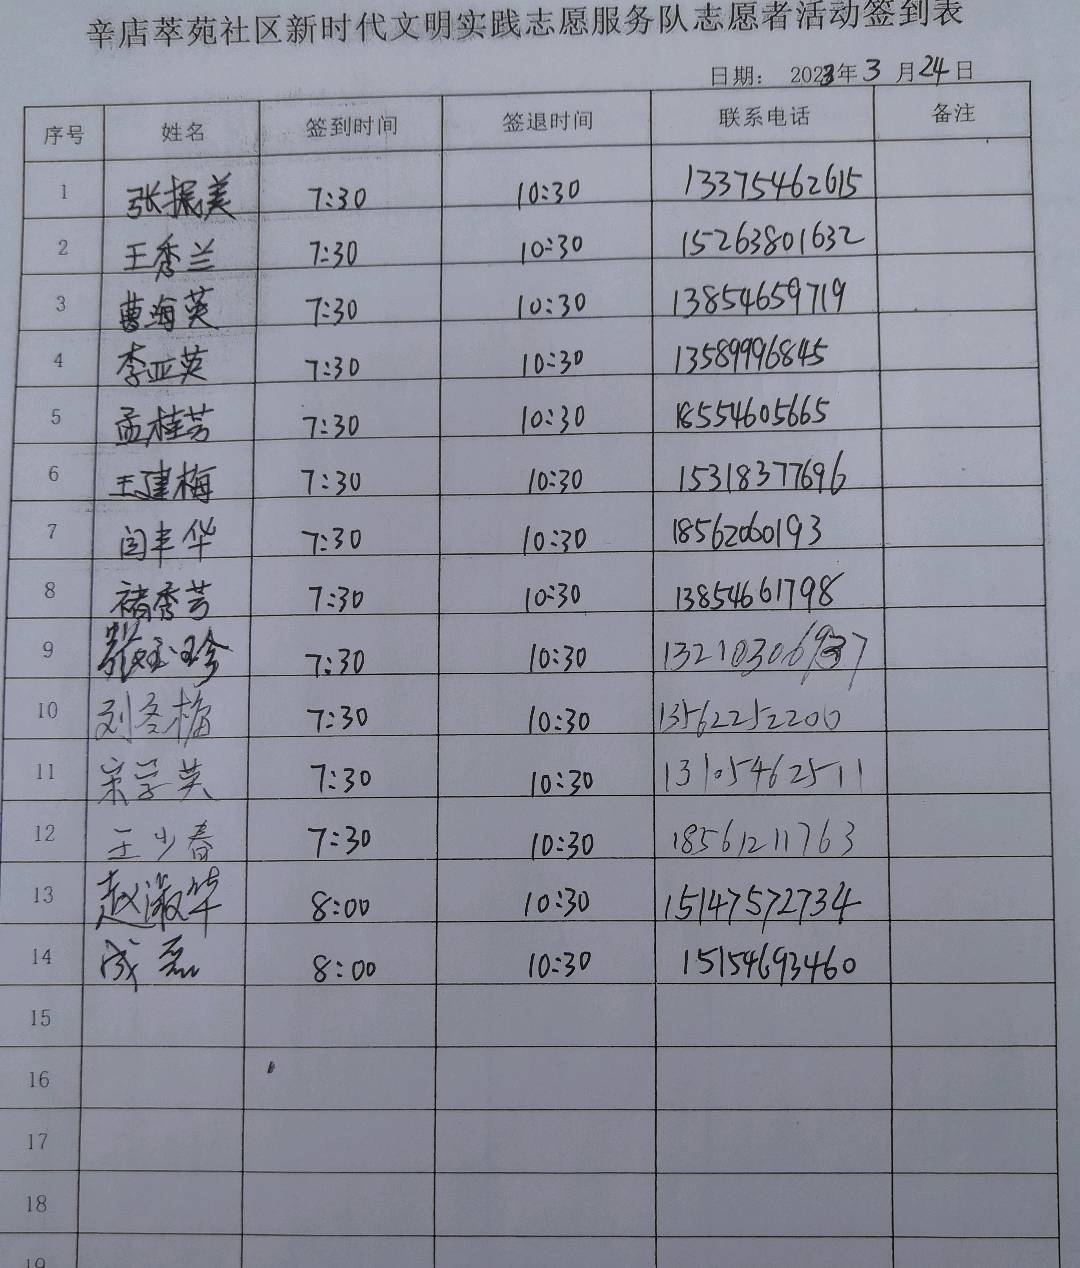 辛店萃苑社区新时代文明实践志愿服务队志愿者活动签到表
日期： 2023年3月24日
序号 姓名 签到时间 签退时间 联系电话 备注
1 张振美 7:30 10:30 13375462615
2 王秀兰 7:30 10:30 15263801632
3 曹海英 7:30 10:30 13854659719
4 李亚英 7:30 10:30 13589996845
5 孟桂芳 7:30 10:30 18554605665
6 王建梅 7:30 10:30 15318377696
7 闫丰华 7:30 10:30 18562060193
8 褚秀芳 7:30 10:30 13854661798
9 张玉珍 7:30 10:30
10 刘冬梅 7:30 10:30 13562252200
11 宋学英 7:30 10:30 13105462511
12 王少春 7:30 10:30 18561211763
13 赵淑华 8:00 10:30 15147572734
14 成磊 8:00 10:30 15154693460
15
16
17
18
19